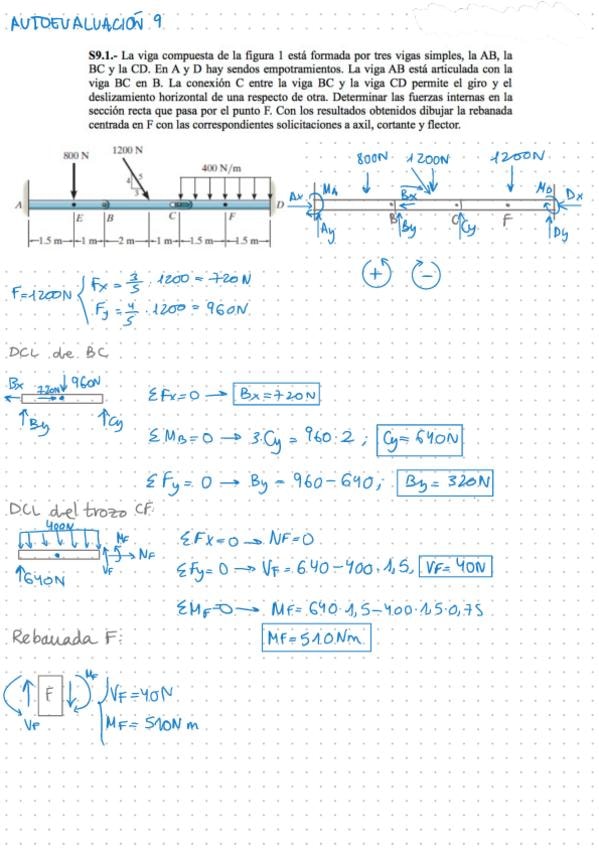 AUTOEVALUACIÓN 9
S9.1.- La viga compuesta de la figura 1 está formada por tres vigas simples, la AB, la
BC y la CD. En A y D hay sendos empotramientos. La viga AB está articulada con la
viga BC en B. La conexión C entre la viga BC y la viga CD permite el giro y el
deslizamiento horizontal de una respecto de otra. Determinar las fuerzas internas en la
sección recta que pasa por el punto F. Con los resultados obtenidos dibujar la rebanada
centrada en F con las correspondientes solicitaciones a axil, cortante y flector.
800 N 1200 N 400 N/m
5 4 3
A E B C F D
1.5 m 1 m 2 m 1 m 1.5 m 1.5 m
800N 1200N 1200N
Ax MA Bx MD Dx
B C F
Ay By Cy Dy
+ −
F=1200N { Fx = 3/5 · 1200 = 720N
Fy = 4/5 · 1200 = 960N
DCL de BC
Bx 720N 960N
By Cy
ΣFx=0 → Bx=720N
ΣMB=0 → 3·Cy = 960·2 ; Cy=640N
ΣFy=0 → By = 960-640; By = 320N
DCL del trozo CF:
400N
MF NF
VF
640N
ΣFx=0 → NF=0
ΣFy=0 → VF = 640-400·1,5, VF= 40N
ΣMF=0 → MF= 640·1,5-400·1,5·0,75
MF=510Nm
Rebanada F:
F MF
VF
VF=40N
MF= 510N m